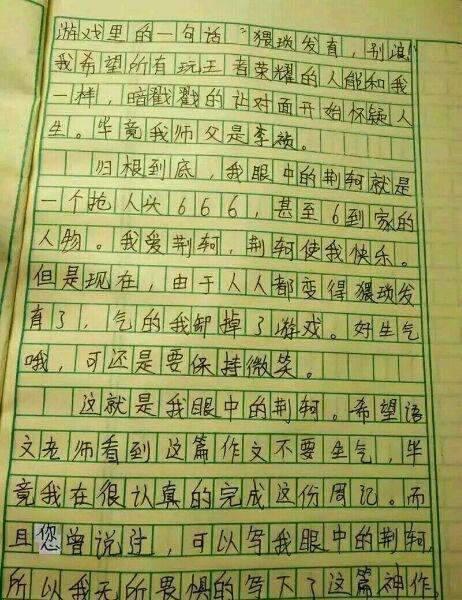 游戏里的一句话“猥琐发育，别浪”
我希望所有玩王者荣耀的人能和我
一样，暗戳戳的让对面开始怀疑人
生。毕竟我师父是李祯。
归根到底，我眼中的荆轲就是
一个抢人头666，甚至6到家的
人物。我爱荆轲，荆轲使我快乐。
但是现在，由于人人都变得猥琐发
育了，气的我卸掉了游戏。好生气
哦，可还是要保持微笑。
这就是我眼中的荆轲。希望语
文老师看到这篇作文不要生气，毕
竟我在很认真的完成这份周记。而
且您曾说过，可以写我眼中的荆轲，
所以我无所畏惧的写下了这篇神作。